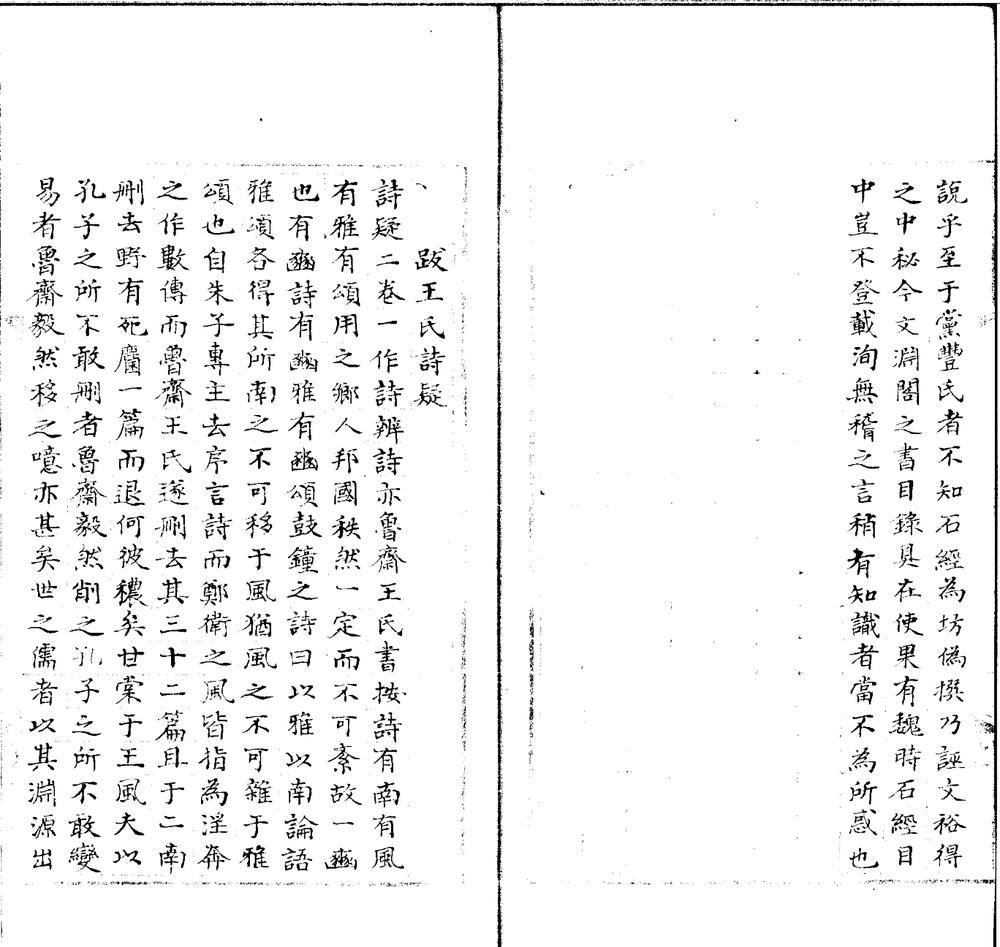 說乎至于黨豐氏者不知石經為坊偽撰乃誣文裕得
之中秘今文淵閣之書目錄具在使果有魏時石經目
中豈不登載洵無稽之言稍有知識者當不為所惑也
跋王氏詩疑
詩疑二卷一作詩辨詩亦魯齋王氏書按詩有南有風
有雅有頌用之鄉人邦國秩然一定而不可紊故一豳
也有豳詩有豳雅有豳頌鼓鐘之詩曰以雅以南論語
雅頌各得其所南之不可移于風猶風之不可雜于雅
頌也自朱子專主去序言詩而鄭衛之風皆指為淫奔
之作數傳而魯齋王氏遂刪去其三十二篇且于二南
刪去野有死麕一篇而退何彼穠矣甘棠于王風夫以
孔子之所不敢刪者魯齋毅然削之孔子之所不敢變
易者魯齋毅然移之噫亦甚矣世之儒者以其淵源出